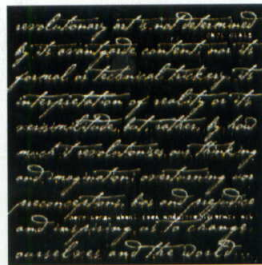 revolutionary art is not determined
by its avant-garde content nor its
formal or technical trickery, its
interpretation of reality or its
verisimilitude, but, rather, by how
much it revolutionizes our thinking
and imagination; overturning our
preconceptions, bias and prejudice
and inspiring us to change
ourselves and the world.